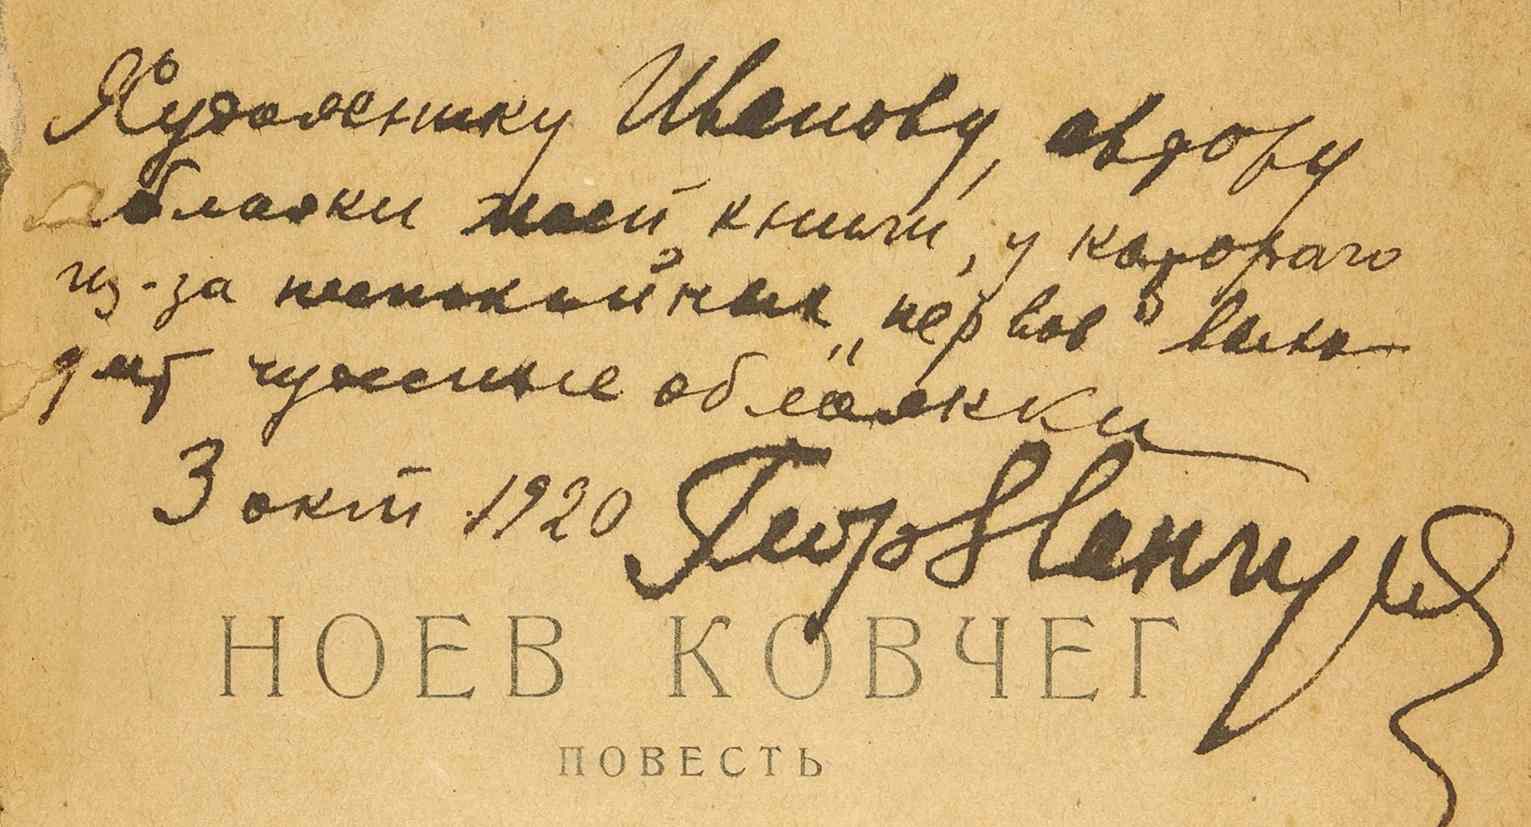 Художнику Иванову, автору
обложки моей книги, у котораго
из-за неспокойных „нервов“ выхо-
дят чужные обложки
3 окт 1920
НОЕВ КОВЧЕГ
ПОВЕСТЬ